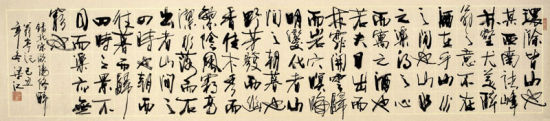 環滁皆山也
其西南諸峰
林壑尤美醉
翁之意不在
酒在乎山水
之間也山水
之樂得之心
而寓之酒也
若夫日出而
林霏開雲歸
而岩穴暝晦
明變化者山
間之朝暮也
野芳發而幽
香佳木秀而
繁陰風霜高
潔水落而石出
者山間之
四時也朝而
往暮而歸
四時之景不
同而樂亦無
窮也
錄北宋歐陽修醉
翁亭記